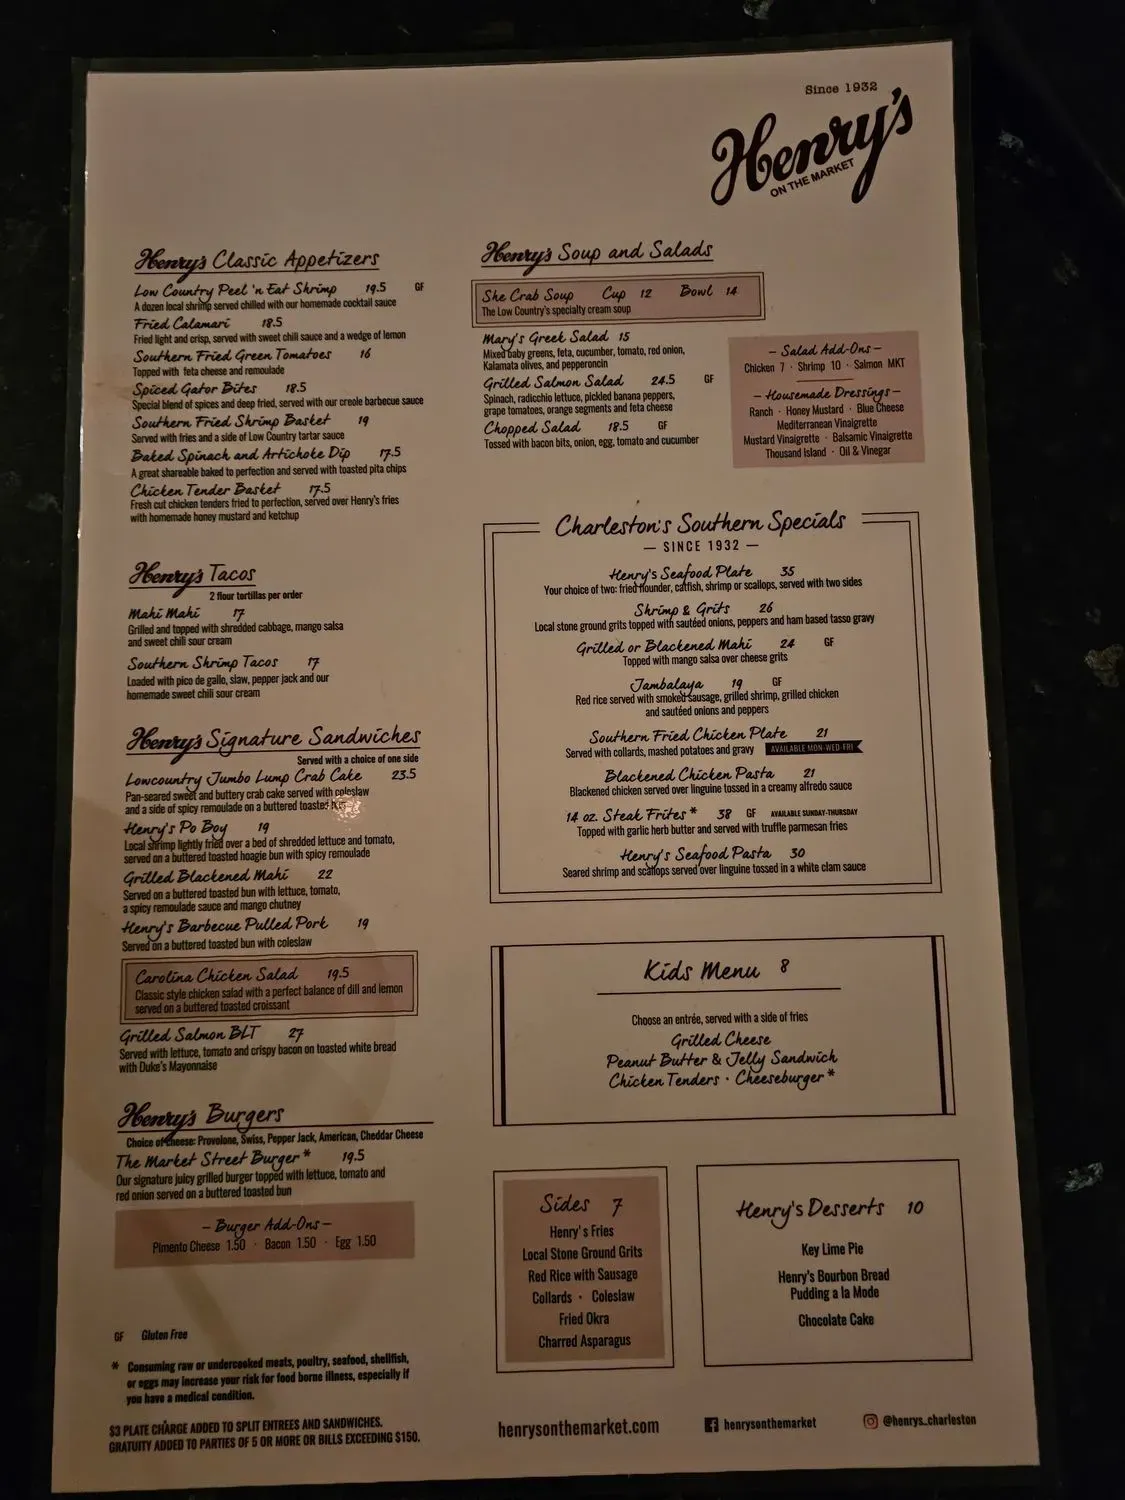 Since 1932
Henry's
ON THE MARKET
Henry's Classic Appetizers
Low Country Peel 'n Eat Shrimp 19.5 GF
A dozen local shrimp served chilled with our homemade cocktail sauce
Fried Calamari 18.5
Fried light and crisp, served with sweet chili sauce and a wedge of lemon
Southern Fried Green Tomatoes 16
Topped with feta cheese and remoulade
Spiced Gator Bites 18.5
Special blend of spices and deep fried, served with our creole barbecue sauce
Southern Fried Shrimp Basket 19
Served with fries and a side of Low Country tartar sauce
Baked Spinach and Artichoke Dip 17.5
A great shareable baked to perfection and served with toasted pita chips
Chicken Tender Basket 17.5
Fresh cut chicken tenders fried to perfection, served over Henry's fries
with homemade honey mustard and ketchup
Henry's Tacos
2 flour tortillas per order
Mahi Mahi 17
Grilled and topped with shredded cabbage, mango salsa
and sweet chili sour cream
Southern Shrimp Tacos 17
Loaded with pico de gallo, slaw, pepper jack and our
homemade sweet chili sour cream
Henry's Signature Sandwiches
Served with a choice of one side
Lowcountry Jumbo Lump Crab Cake 23.5
Pan-seared sweet and buttery crab cake served with coleslaw
and a side of spicy remoulade on a buttered toasted
Henry's Po Boy 19
Local shrimp lightly fried over a bed of shredded lettuce and tomato,
served on a buttered toasted hoagie bun with spicy remoulade
Grilled Blackened Mahi 22
Served on a buttered toasted bun with lettuce, tomato,
a spicy remoulade sauce and mango chutney
Henry's Barbecue Pulled Pork 19
Served on a buttered toasted bun with coleslaw
Carolina Chicken Salad 19.5
Classic style chicken salad with a perfect balance of dill and lemon
served on a buttered toasted croissant
Grilled Salmon BLT 27
Served with lettuce, tomato and crispy bacon on toasted white bread
with Duke's Mayonnaise
Henry's Burgers
Choice of cheese: Provolone, Swiss, Pepper Jack, American, Cheddar Cheese
The Market Street Burger* 19.5
Our signature juicy grilled burger topped with lettuce, tomato and
red onion served on a buttered toasted bun
— Burger Add-Ons —
Pimento Cheese 1.50 · Bacon 1.50 · Egg 1.50
GF Gluten Free
* Consuming raw or undercooked meats, poultry, seafood, shellfish,
or eggs may increase your risk for food borne illness, especially if
you have a medical condition.
$3 PLATE CHARGE ADDED TO SPLIT ENTREES AND SANDWICHES.
GRATUITY ADDED TO PARTIES OF 5 OR MORE OR BILLS EXCEEDING $150.
Henry's Soup and Salads
She Crab Soup Cup 12 Bowl 14
The Low Country's specialty cream soup
Mary's Greek Salad 15
Mixed baby greens, feta, cucumber, tomato, red onion,
Kalamata olives, and pepperoncin
Grilled Salmon Salad 24.5 GF
Spinach, radicchio lettuce, pickled banana peppers,
grape tomatoes, orange segments and feta cheese
Chopped Salad 18.5 GF
Tossed with bacon bits, onion, egg, tomato and cucumber
— Salad Add-Ons —
Chicken 7 · Shrimp 10 · Salmon MKT
— Housemade Dressings —
Ranch · Honey Mustard · Blue Cheese
Mediterranean Vinaigrette
Mustard Vinaigrette · Balsamic Vinaigrette
Thousand Island · Oil & Vinegar
Charleston's Southern Specials
— SINCE 1932 —
Henry's Seafood Plate 35
Your choice of two: fried flounder, catfish, shrimp or scallops, served with two sides
Shrimp & Grits 26
Local stone ground grits topped with sautéed onions, peppers and ham based tasso gravy
Grilled or Blackened Mahi 24 GF
Topped with mango salsa over cheese grits
Jambalaya 19 GF
Red rice served with smoked sausage, grilled shrimp, grilled chicken
and sautéed onions and peppers
Southern Fried Chicken Plate 21
Served with collards, mashed potatoes and gravy AVAILABLE MON-WED-FRI
Blackened Chicken Pasta 21
Blackened chicken served over linguine tossed in a creamy alfredo sauce
14 oz. Steak Frites* 38 GF AVAILABLE SUNDAY-THURSDAY
Topped with garlic herb butter and served with truffle parmesan fries
Henry's Seafood Pasta 30
Seared shrimp and scallops served over linguine tossed in a white clam sauce
Kids Menu 8
Choose an entrée, served with a side of fries
Grilled Cheese
Peanut Butter & Jelly Sandwich
Chicken Tenders · Cheeseburger*
Sides 7
Henry's Fries
Local Stone Ground Grits
Red Rice with Sausage
Collards · Coleslaw
Fried Okra
Charred Asparagus
Henry's Desserts 10
Key Lime Pie
Henry's Bourbon Bread
Pudding a la Mode
Chocolate Cake
henrysonthemarket.com
henrysonthemarket
@henrys_charleston